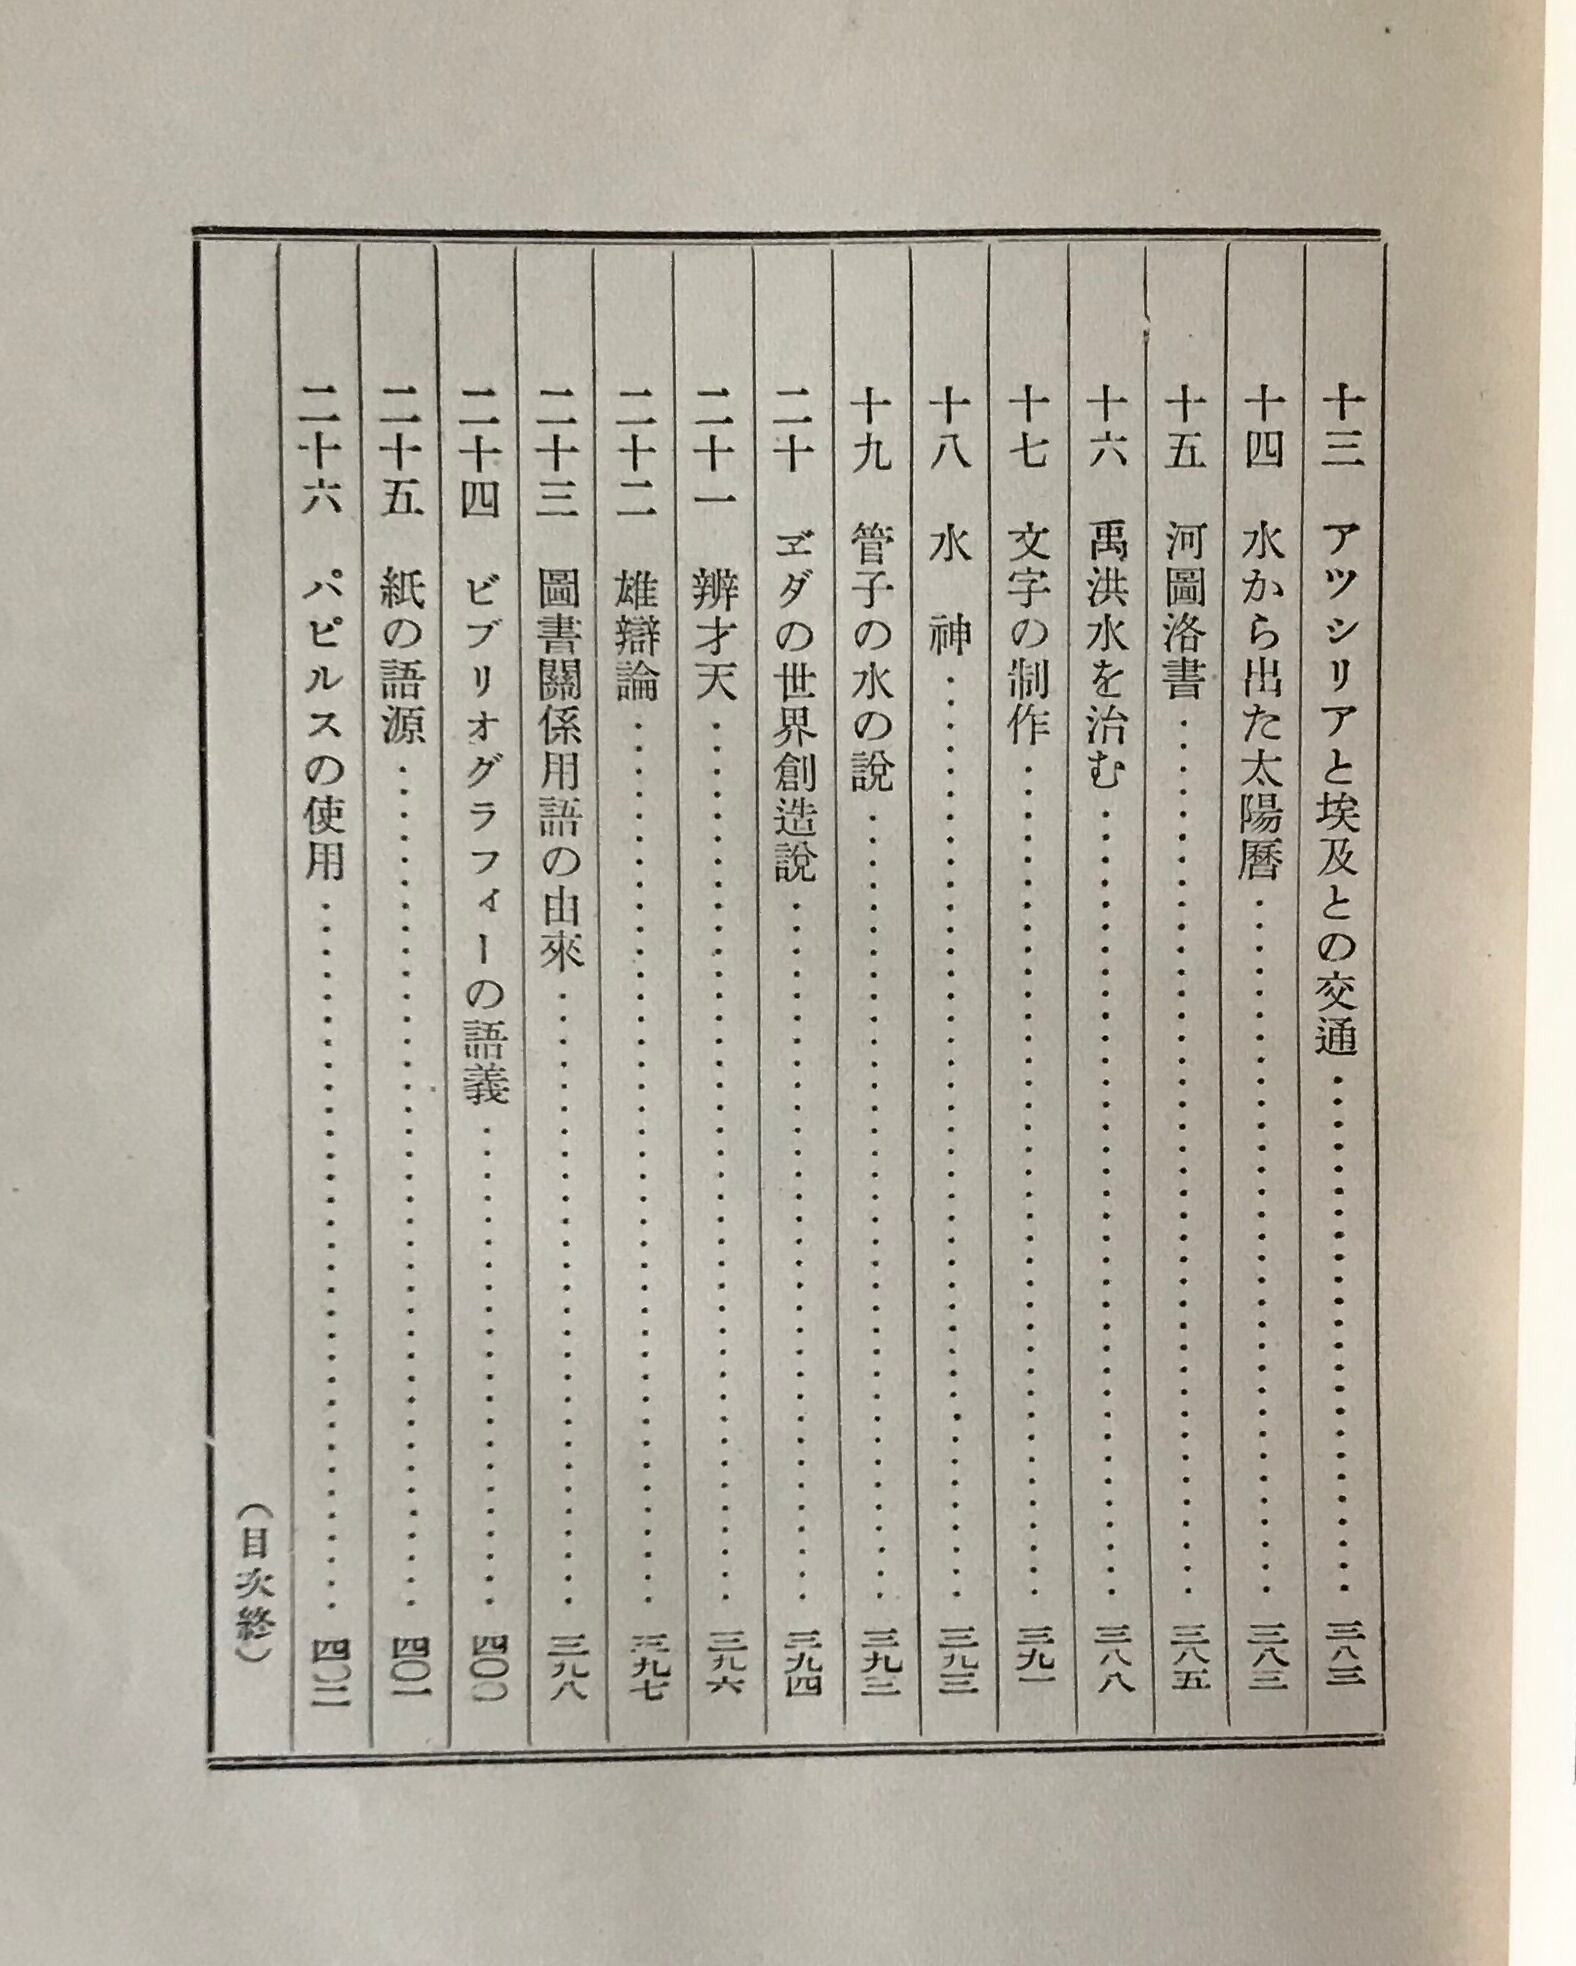 十三 アツシリアと埃及との交通……三八三
十四 水から出た太陽曆……三八三
十五 河圖洛書……三八五
十六 禹洪水を治む……三八八
十七 文字の制作……三九一
十八 水神……三九三
十九 管子の水の說……三九三
二十 ヱダの世界創造說……三九四
二十一 辨才天……三九六
二十二 雄辯論……三九七
二十三 圖書關係用語の由來……三九八
二十四 ビブリオグラフィーの語義……四〇〇
二十五 紙の語源……四〇一
二十六 パピルスの使用……四〇二
（目次終）